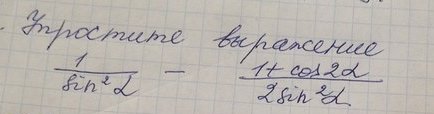 Упростите выражение
1/sin²α − (1+cos2α)/(2sin²α)